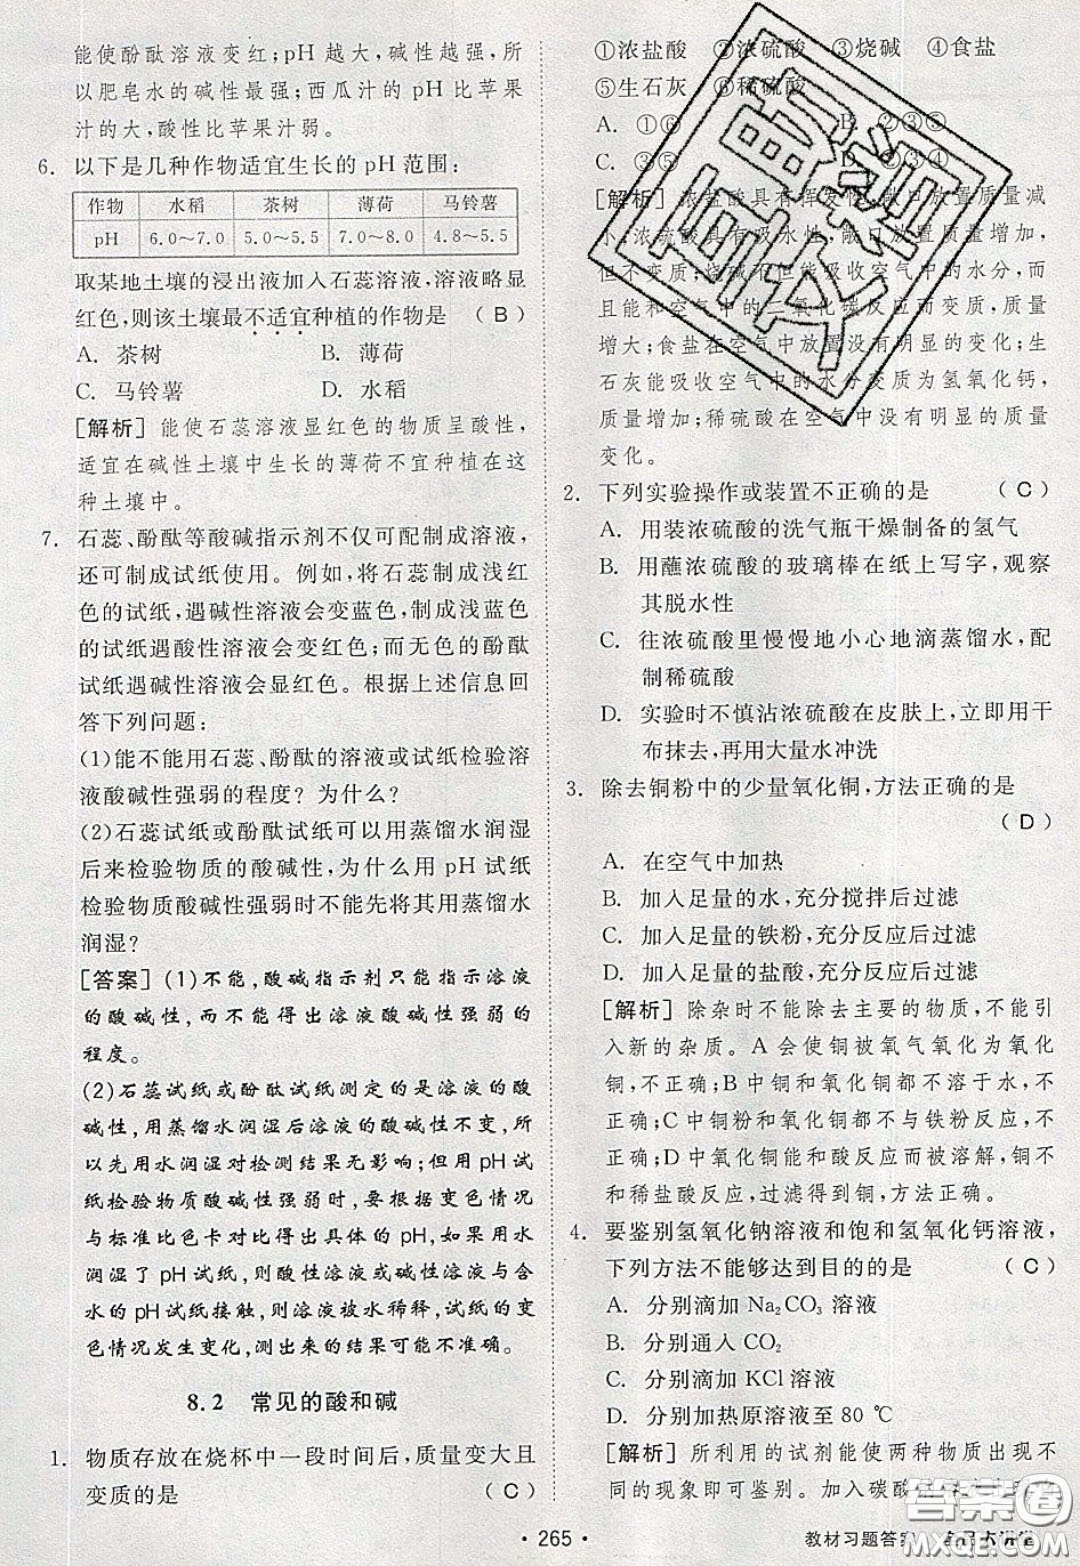 能使酚酞溶液变红；pH 越大，碱性越强，所
以肥皂水的碱性最强；西瓜汁的 pH 比苹果
汁的大，酸性比苹果汁弱。
6. 以下是几种作物适宜生长的 pH 范围：
作物 水稻 茶树 薄荷 马铃薯
pH 6.0～7.0 5.0～5.5 7.0～8.0 4.8～5.5
取某地土壤的浸出液加入石蕊溶液，溶液略显
红色，则该土壤最不适宜种植的作物是 （ B ）
A. 茶树 B. 薄荷
C. 马铃薯 D. 水稻
［解析］ 能使石蕊溶液显红色的物质呈酸性，
适宜在碱性土壤中生长的薄荷不宜种植在这
种土壤中。
7. 石蕊、酚酞等酸碱指示剂不仅可配制成溶液，
还可制成试纸使用。例如，将石蕊制成浅红
色的试纸，遇碱性溶液会变蓝色，制成浅蓝色
的试纸遇酸性溶液会变红色；而无色的酚酞
试纸遇碱性溶液会显红色。根据上述信息回
答下列问题：
(1)能不能用石蕊、酚酞的溶液或试纸检验溶
液酸碱性强弱的程度？为什么？
(2)石蕊试纸或酚酞试纸可以用蒸馏水润湿
后来检验物质的酸碱性，为什么用 pH 试纸
检验物质酸碱性强弱时不能先将其用蒸馏水
润湿？
［答案］ (1)不能，酸碱指示剂只能指示溶液
的酸碱性，而不能得出溶液酸碱性强弱的
程度。
(2)石蕊试纸或酚酞试纸测定的是溶液的酸
碱性，用蒸馏水润湿后溶液的酸碱性不变，所
以先用水润湿对检测结果无影响；但用 pH 试
纸检验物质酸碱性强弱时，要根据变色情况
与标准比色卡对比得出具体的 pH，如果用水
润湿了 pH 试纸，则酸性溶液或碱性溶液与含
水的 pH 试纸接触，则溶液被水稀释，试纸的变
色情况发生变化，测出来的结果可能不准确。
8.2 常见的酸和碱
1. 物质存放在烧杯中一段时间后，质量变大且
变质的是 （ C ）
①浓盐酸 ②浓硫酸 ③烧碱 ④食盐
⑤生石灰 ⑥稀硫酸
A. ①⑥ B. ②③⑤
C. ③⑤ D. ②③④⑤
［解析］ 浓盐酸具有挥发性，敞口放置质量减
小；浓硫酸具有吸水性，敞口放置质量增大，
但不变质；烧碱不但能吸收空气中的水分，而
且能和空气中的二氧化碳反应而变质，质量
增大；食盐在空气中放置没有明显的变化；生
石灰能吸收空气中的水分变质为氢氧化钙，
质量增加；稀硫酸在空气中没有明显的质量
变化。
2. 下列实验操作或装置不正确的是 （ C ）
A. 用装浓硫酸的洗气瓶干燥制备的氢气
B. 用蘸浓硫酸的玻璃棒在纸上写字，观察
其脱水性
C. 往浓硫酸里慢慢地小心地滴蒸馏水，配
制稀硫酸
D. 实验时不慎沾浓硫酸在皮肤上，立即用干
布抹去，再用大量水冲洗
3. 除去铜粉中的少量氧化铜，方法正确的是
（ D ）
A. 在空气中加热
B. 加入足量的水，充分搅拌后过滤
C. 加入足量的铁粉，充分反应后过滤
D. 加入足量的盐酸，充分反应后过滤
［解析］ 除杂时不能除去主要的物质，不能引
入新的杂质。A 会使铜被氧气氧化为氧化
铜，不正确；B 中铜和氧化铜都不溶于水，不
正确；C 中铜粉和氧化铜都不与铁粉反应，不
正确；D 中氧化铜能和酸反应而被溶解，铜不
和稀盐酸反应，过滤得到铜，方法正确。
4. 要鉴别氢氧化钠溶液和饱和氢氧化钙溶液，
下列方法不能够达到目的的是 （ C ）
A. 分别滴加 Na₂CO₃ 溶液
B. 分别通入 CO₂
C. 分别滴加 KCl 溶液
D. 分别加热原溶液至 80 ℃
［解析］ 所利用的试剂能使两种物质出现不
同的现象即可鉴别。加入碳酸
·265· 教材习题答案
答案圈
MXQE.COM